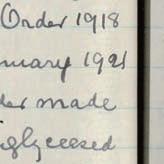 Order 1918
nuary 1921
der made
iglyceesed